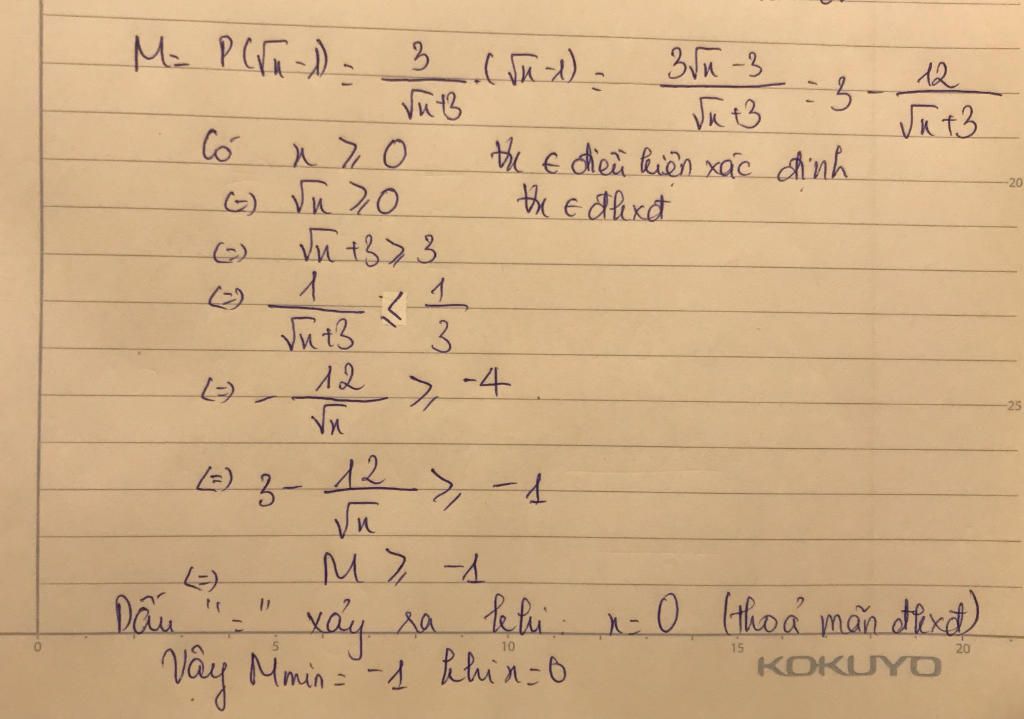 M = P(√x - 1) = 3/(√x+3) . (√x - 1) = (3√x - 3)/(√x + 3) = 3 - 12/(√x + 3)
Có x ⩾ 0 ∀x ∈ điều kiện xác định
(=) √x ⩾ 0 ∀x ∈ đkxđ
(=) √x + 3 ⩾ 3
(=) 1/(√x+3) ⩽ 1/3
(=) - 12/√x ⩾ -4
(=) 3 - 12/√x ⩾ -1
(=) M ⩾ -1
Dấu "=" xảy ra khi: x = 0 (thoả mãn đkxđ)
0 5 10 15 20
Vậy Mmin = -1 khi x = 0
KOKUYO
20
25